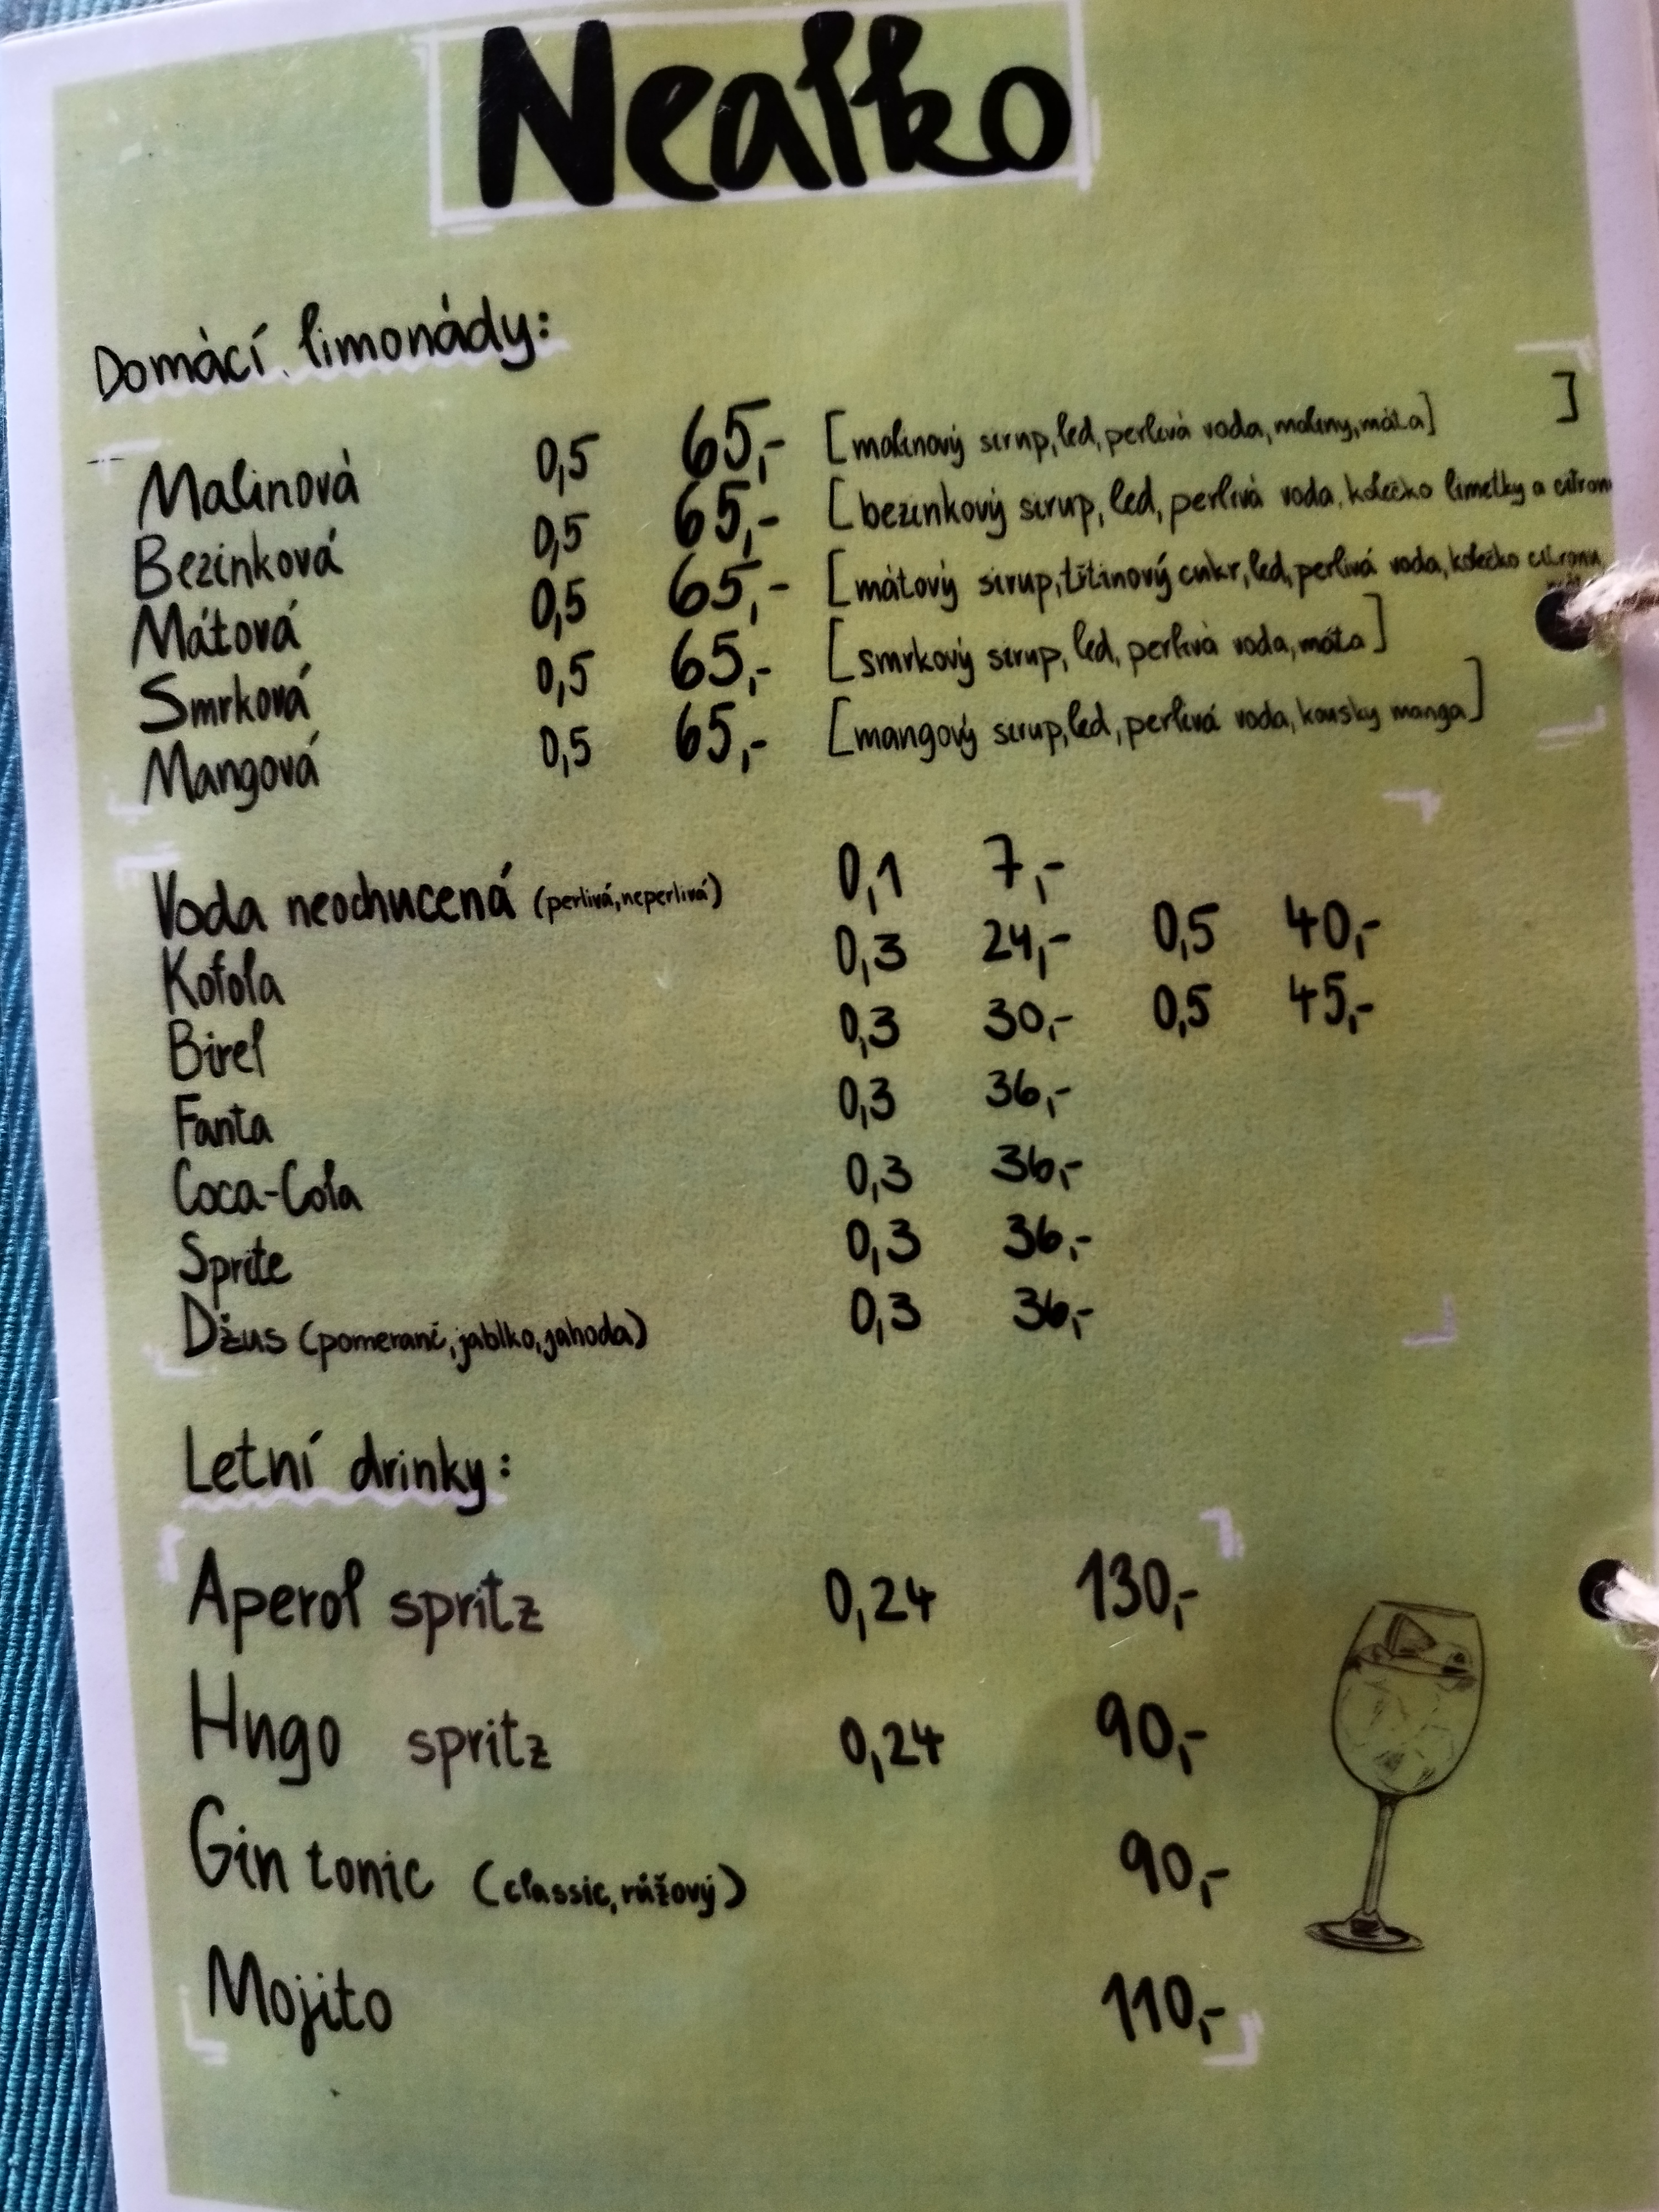 Nealko
Domácí limonády:
Malinová 0,5 65,- [malinový sirup, led, perlivá voda, maliny, máta] ]
Bezinková 0,5 65,- [bezinkový sirup, led, perlivá voda, kolečko limetky a citron
Mátová 0,5 65,- [mátový sirup, třtinový cukr, led, perlivá voda, kolečko citronu,
Smrková 0,5 65,- [smrkový sirup, led, perlivá voda, máta]
Mangová 0,5 65,- [mangový sirup, led, perlivá voda, kousky manga]
Voda neochucená (perlivá, neperlivá) 0,1 7,-
Kofola 0,3 24,- 0,5 40,-
Birel 0,3 30,- 0,5 45,-
Fanta 0,3 36,-
Coca-Cola 0,3 36,-
Sprite 0,3 36,-
Džus (pomeranč, jablko, jahoda) 0,3 36,-
Letní drinky:
Aperol spritz 0,24 130,-
Hugo spritz 0,24 90,-
Gin tonic (classic, růžový) 90,-
Mojito 110,-